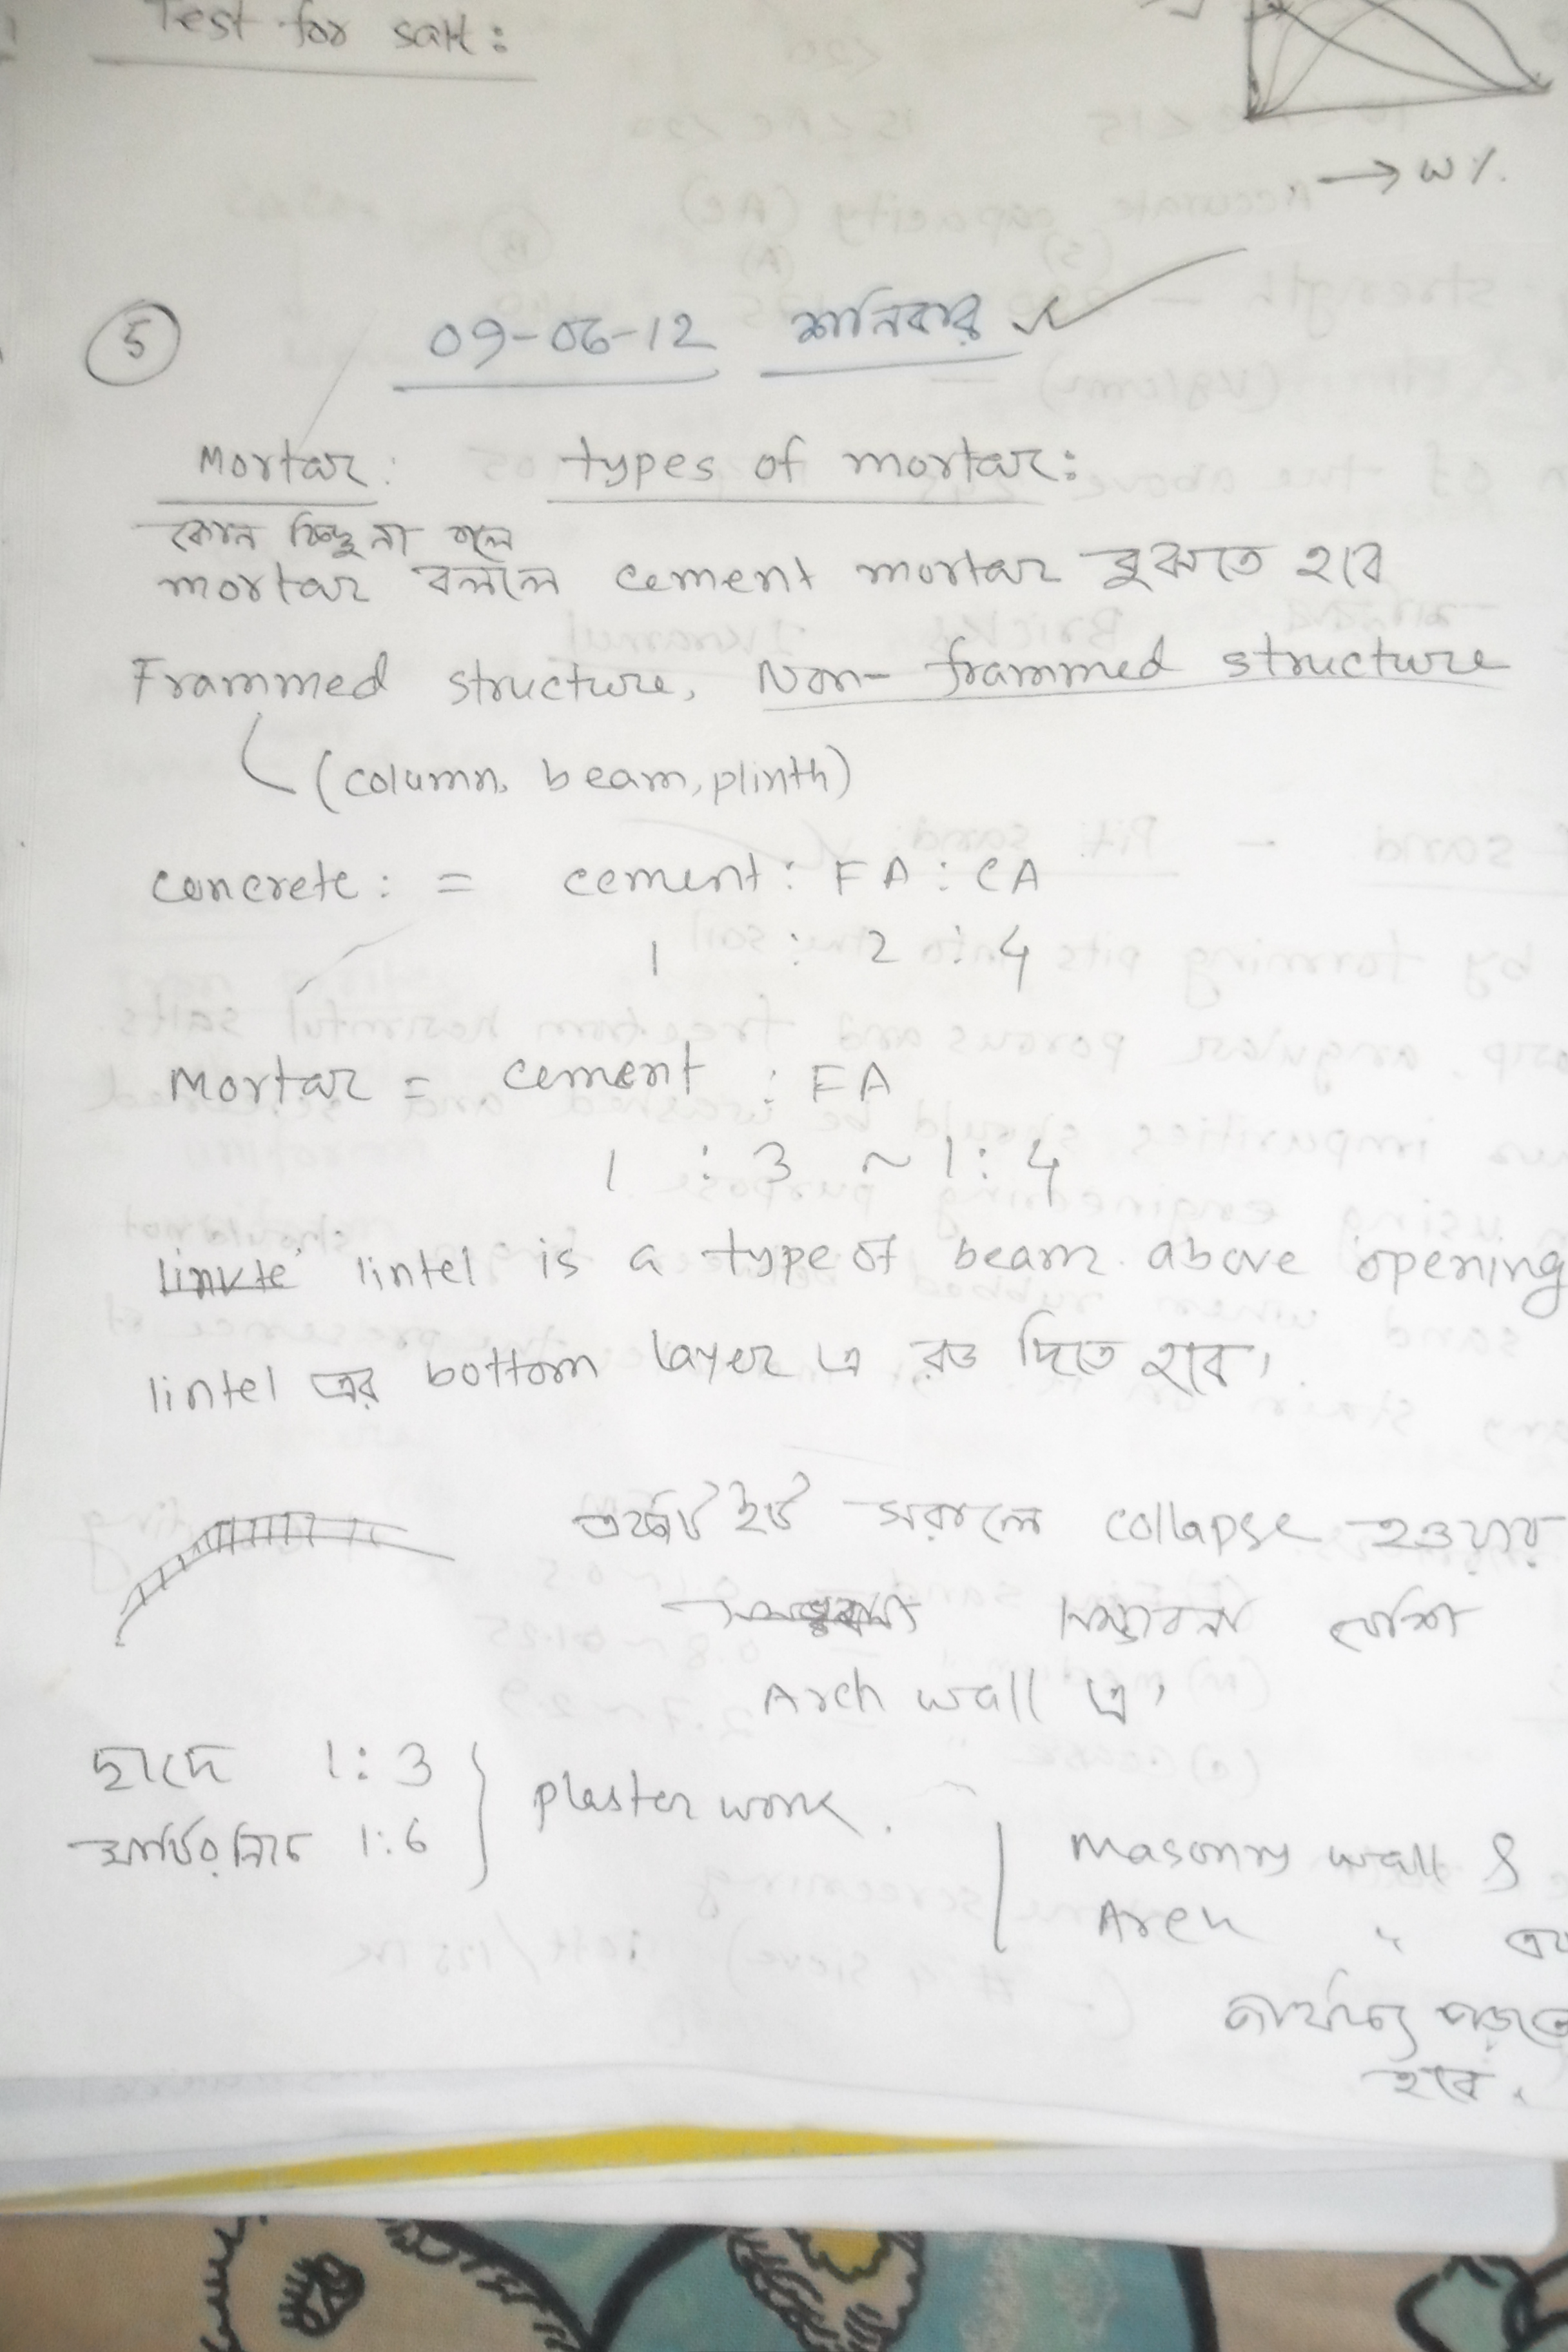 Test for salt:
→ w%.
5 09-06-12 শনিবার
Mortar: types of mortar:
কোন কিছু না বলে
mortar বললে cement mortar বুঝতে হবে
Frammed structure, Non-frammed structure
(column, beam, plinth)
concrete: = cement: FA: CA
1 : 2 : 4
Mortar = cement : FA
1 : 3 ~ 1: 4
lintel is a type of beam above opening
lintel এর bottom layer এ রড দিতে হবে।
একটি ইট সরালে collapse হওয়ার
সম্ভাবনা বেশি
Arch wall এ।
ছাদে 1: 3
1:6
plaster work.
Masonry wall ও
Arch "
পার্থক্য পড়তে
হবে.